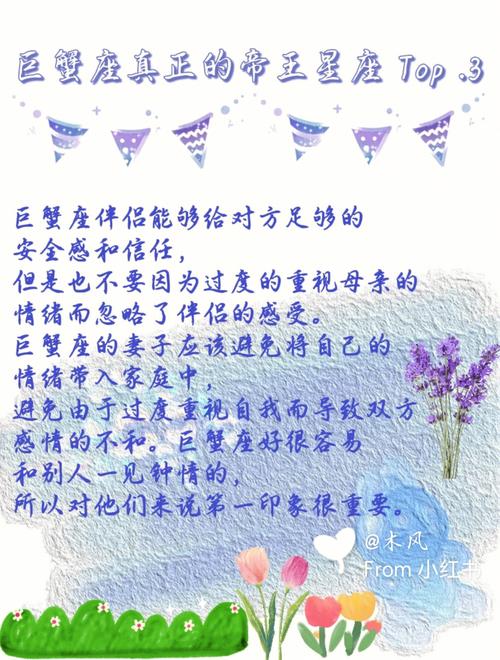 巨蟹座真正的帝王星座 Top .3
巨蟹座伴侣能够给对方足够的
安全感和信任，
但是也不要因为过度的重视母亲的
情绪而忽略了伴侣的感受。
巨蟹座的妻子应该避免将自己的
情绪带入家庭中，
避免由于过度重视自我而导致双方
感情的不和。巨蟹座好很容易
和别人一见钟情的，
所以对他们来说第一印象很重要。
@木风
From 小红书